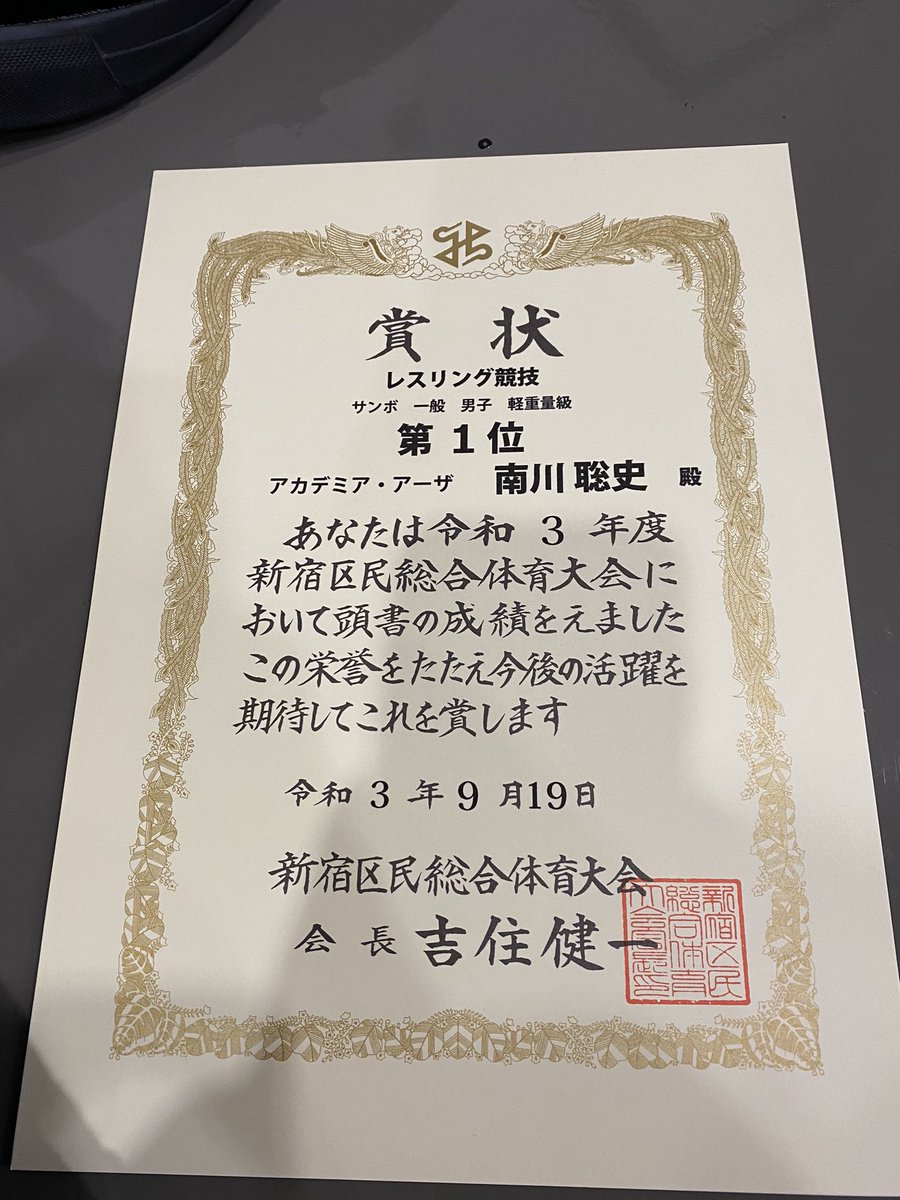 賞状
レスリング競技
サンボ 一般 男子 軽重量級
第1位
アカデミア・アーザ 南川 聡史 殿
あなたは令和3年度
新宿区民総合体育大会に
おいて頭書の成績をえました
この栄誉をたたえ今後の活躍を
期待してこれを賞します
令和3年9月19日
新宿区民総合体育大会
会長 吉住健一
新宿区民
総合体育